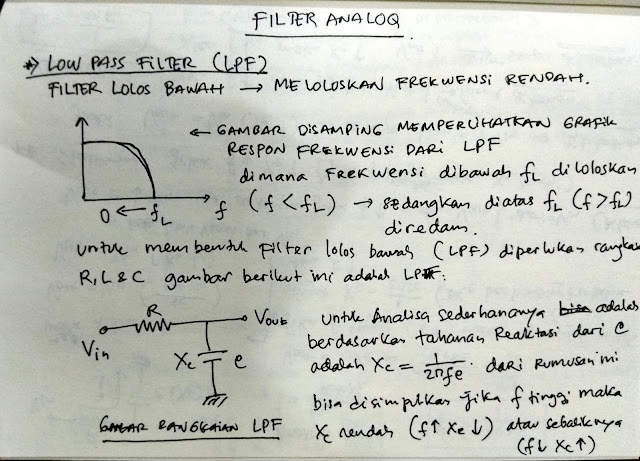 FILTER ANALOQ
*) LOW PASS FILTER (LPF)
FILTER LOLOS BAWAH → MELOLOSKAN FREKWENSI RENDAH.
← GAMBAR DISAMPING MEMPERLIHATKAN GRAFIK
RESPON FREKWENSI DARI LPF
dimana FREKWENSI dibawah fL diloloskan
(f < fL) → sedangkan diatas fL (f > fL)
diredam.
0 ← fL f
untuk membentuk filter lolos bawah (LPF) diperlukan rangkaian
R, L & C gambar berikut ini adalah LPF:
R
Vin
Vout
Xc
C
GAMBAR RANGKAIAN LPF
untuk Analisa sederhananya bisa adalah
berdasarkan tahanan Reaktasi dari C
adalah Xc = 1/2πfc. dari rumusan ini
bisa disimpulkan jika f tinggi maka
Xc rendah (f↑ Xc↓) atau sebaliknya
(f↓ Xc↑)